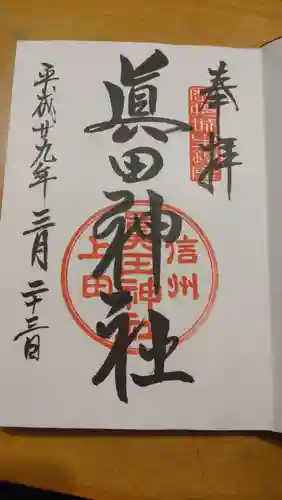 奉拝
眞田神社
信州
上田
眞田神社
平成廿九年三月二十三日